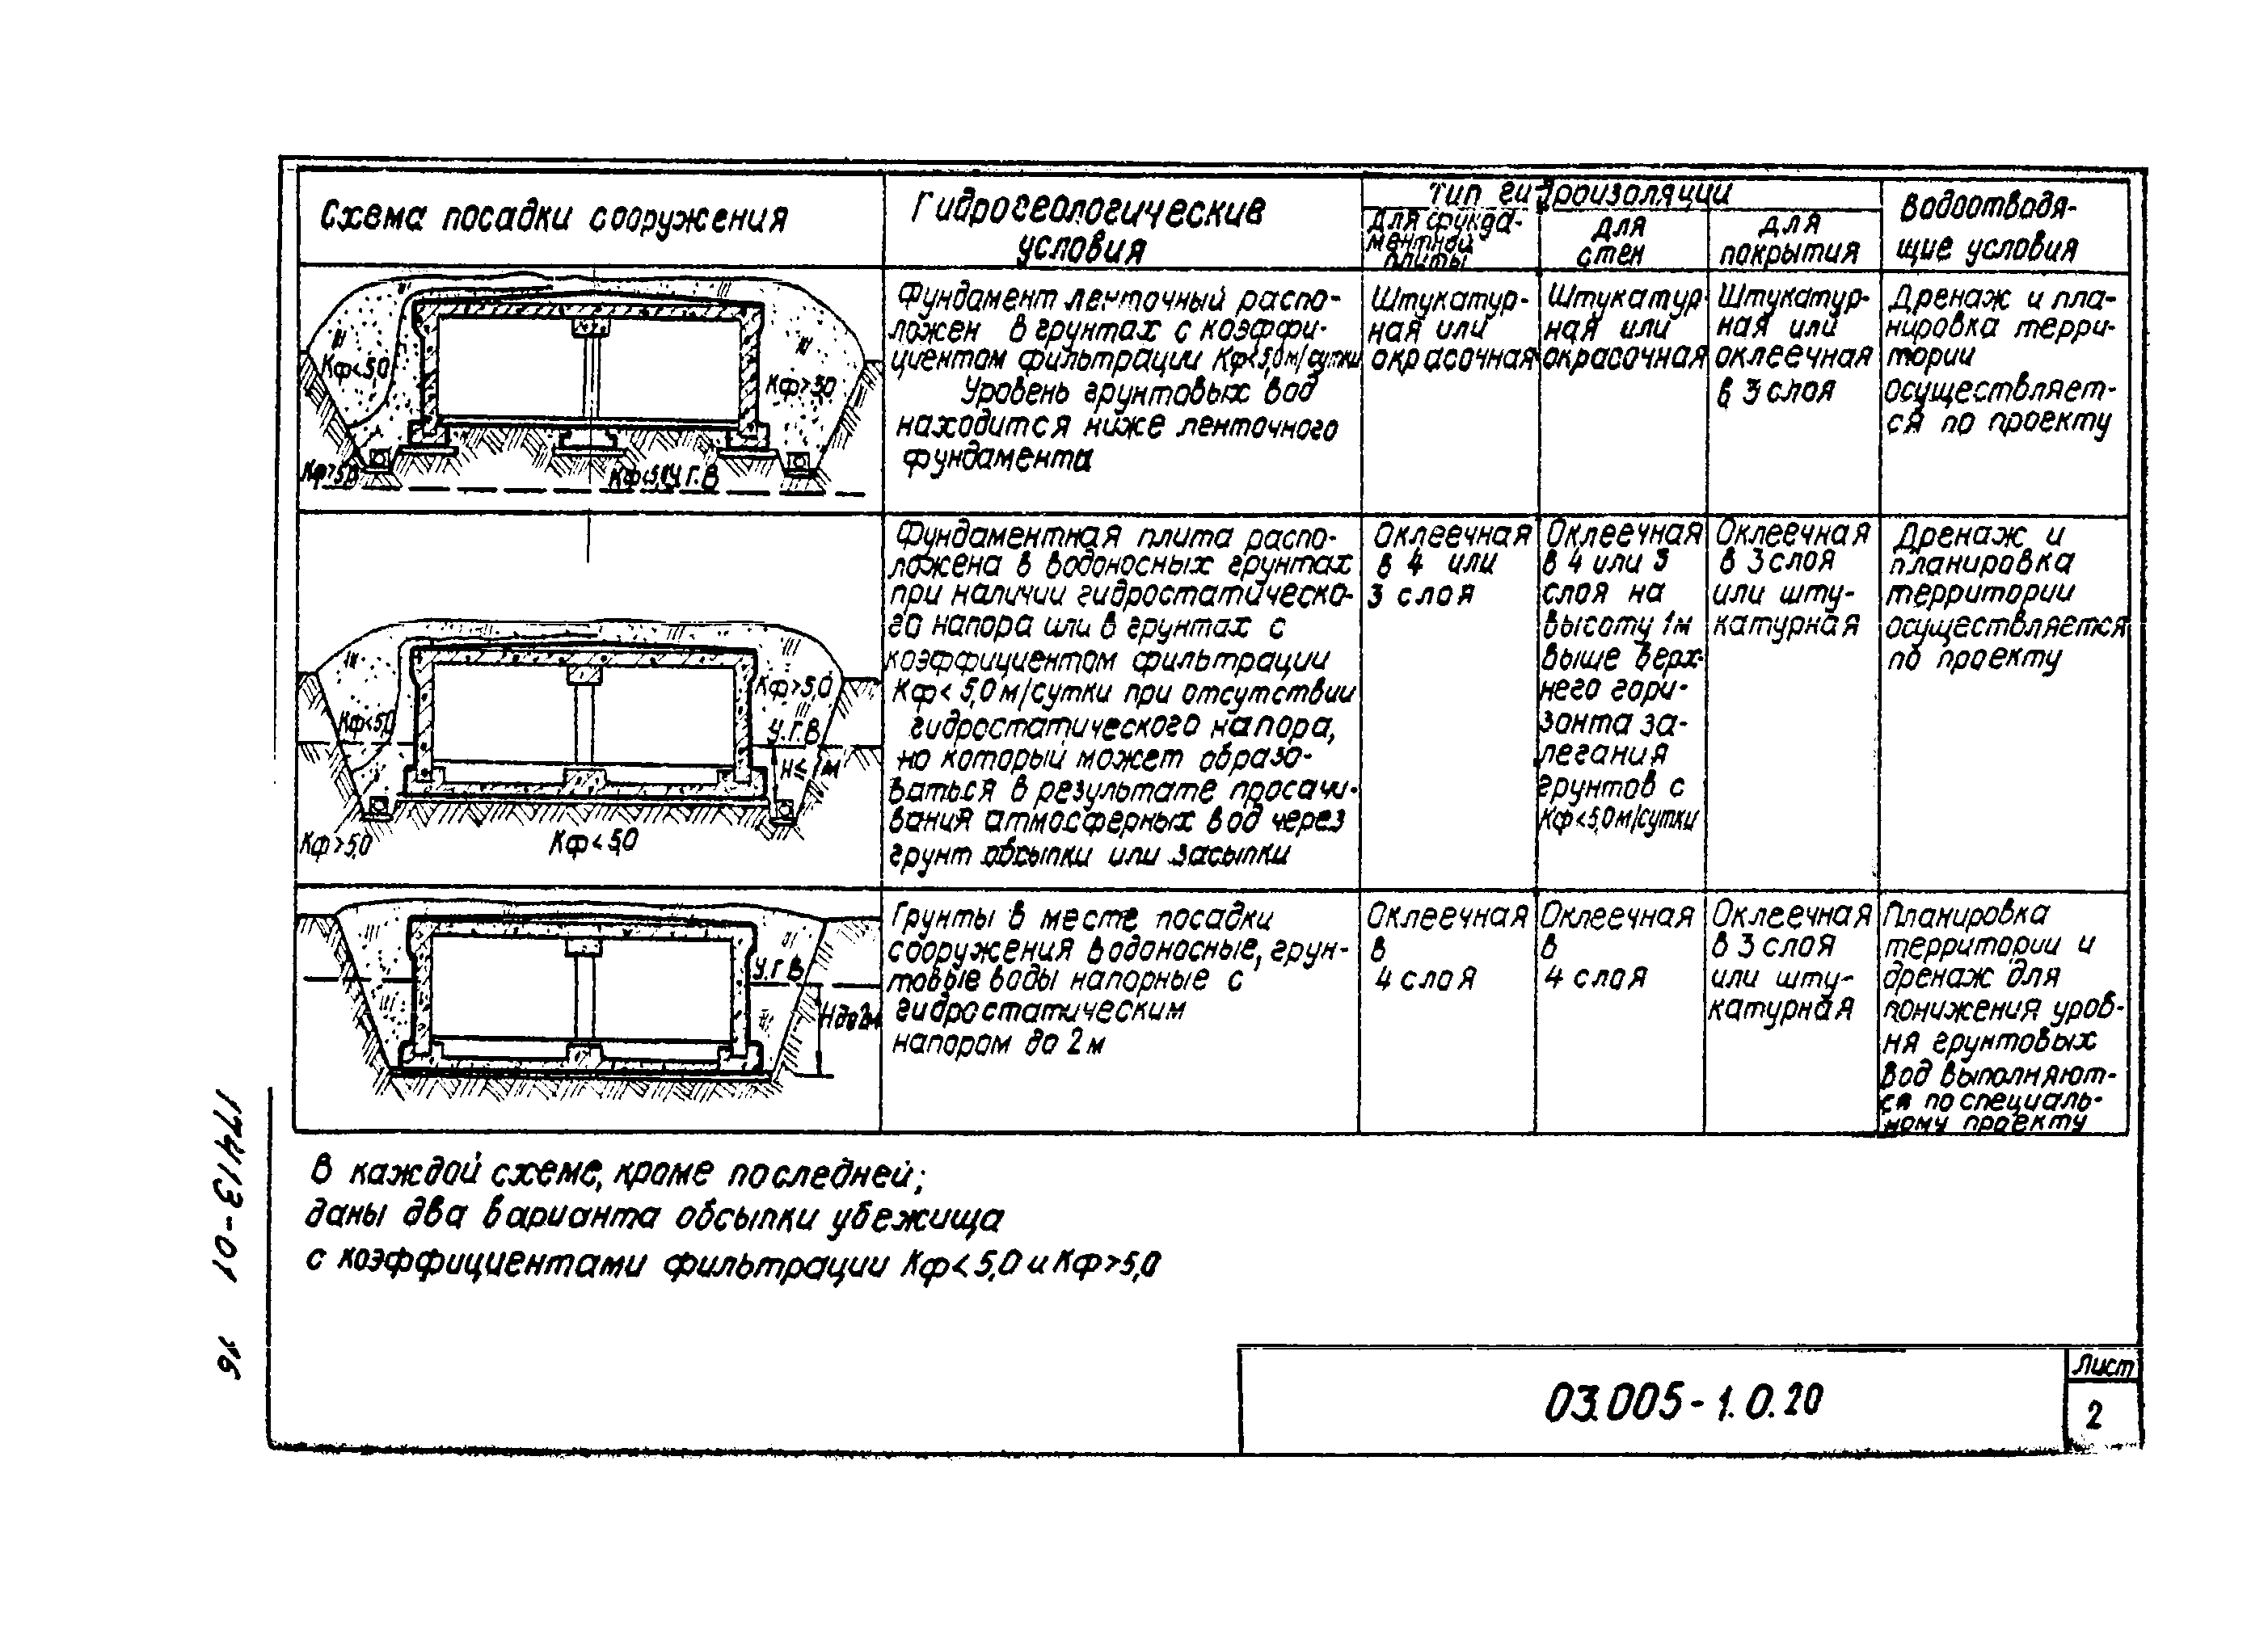 Схема посадки сооружения
Гидрогеологические
условия
Тип гидроизоляции
для фунда-
ментной
плиты
для
стен
для
покрытия
Водоотводя-
щие условия
Кф<5,0
Кф>5,0
Кф>5,0
Кф<5,0
У.Г.В
Фундамент ленточный распо-
ложен в грунтах с коэффи-
циентом фильтрации Кф<5,0м/сутки
Уровень грунтовых вод
находится ниже ленточного
фундамента
Штукатур-
ная или
окрасочная
Штукатур-
ная или
окрасочная
Штукатур-
ная или
оклеечная
в 3 слоя
Дренаж и пла-
нировка терри-
тории
осуществляет-
ся по проекту
Кф>5,0
Кф<5,0
У.Г.В
Н≤1м
Кф>5,0
Кф<5,0
Фундаментная плита распо-
ложена в водоносных грунтах
при наличии гидростатическо-
го напора или в грунтах с
коэффициентом фильтрации
Кф<5,0м/сутки при отсутствии
гидростатического напора,
но который может образо-
ваться в результате просачи-
вания атмосферных вод через
грунт обсыпки или засыпки
Оклеечная
в 4 или
3 слоя
Оклеечная
в 4 или 3
слоя на
высоту 1м
выше верх-
него гори-
зонта за-
легания
грунтов с
Кф<5,0м/сутки
Оклеечная
в 3 слоя
или шту-
катурная
Дренаж и
планировка
территории
осуществляется
по проекту
У.Г.В
Н до 2м
Грунты в месте посадки
сооружения водоносные, грун-
товые воды напорные с
гидростатическим
напором до 2м
Оклеечная
в
4 слоя
Оклеечная
в
4 слоя
Оклеечная
в 3 слоя
или шту-
катурная
Планировка
территории и
дренаж для
понижения уров-
ня грунтовых
вод выполняют-
ся по специаль-
ному проекту
В каждой схеме, кроме последней;
даны два варианта обсыпки убежища
с коэффициентами фильтрации Кф<5,0 и Кф>5,0
17413-01 16
03.005-1.0.20
Лист
2